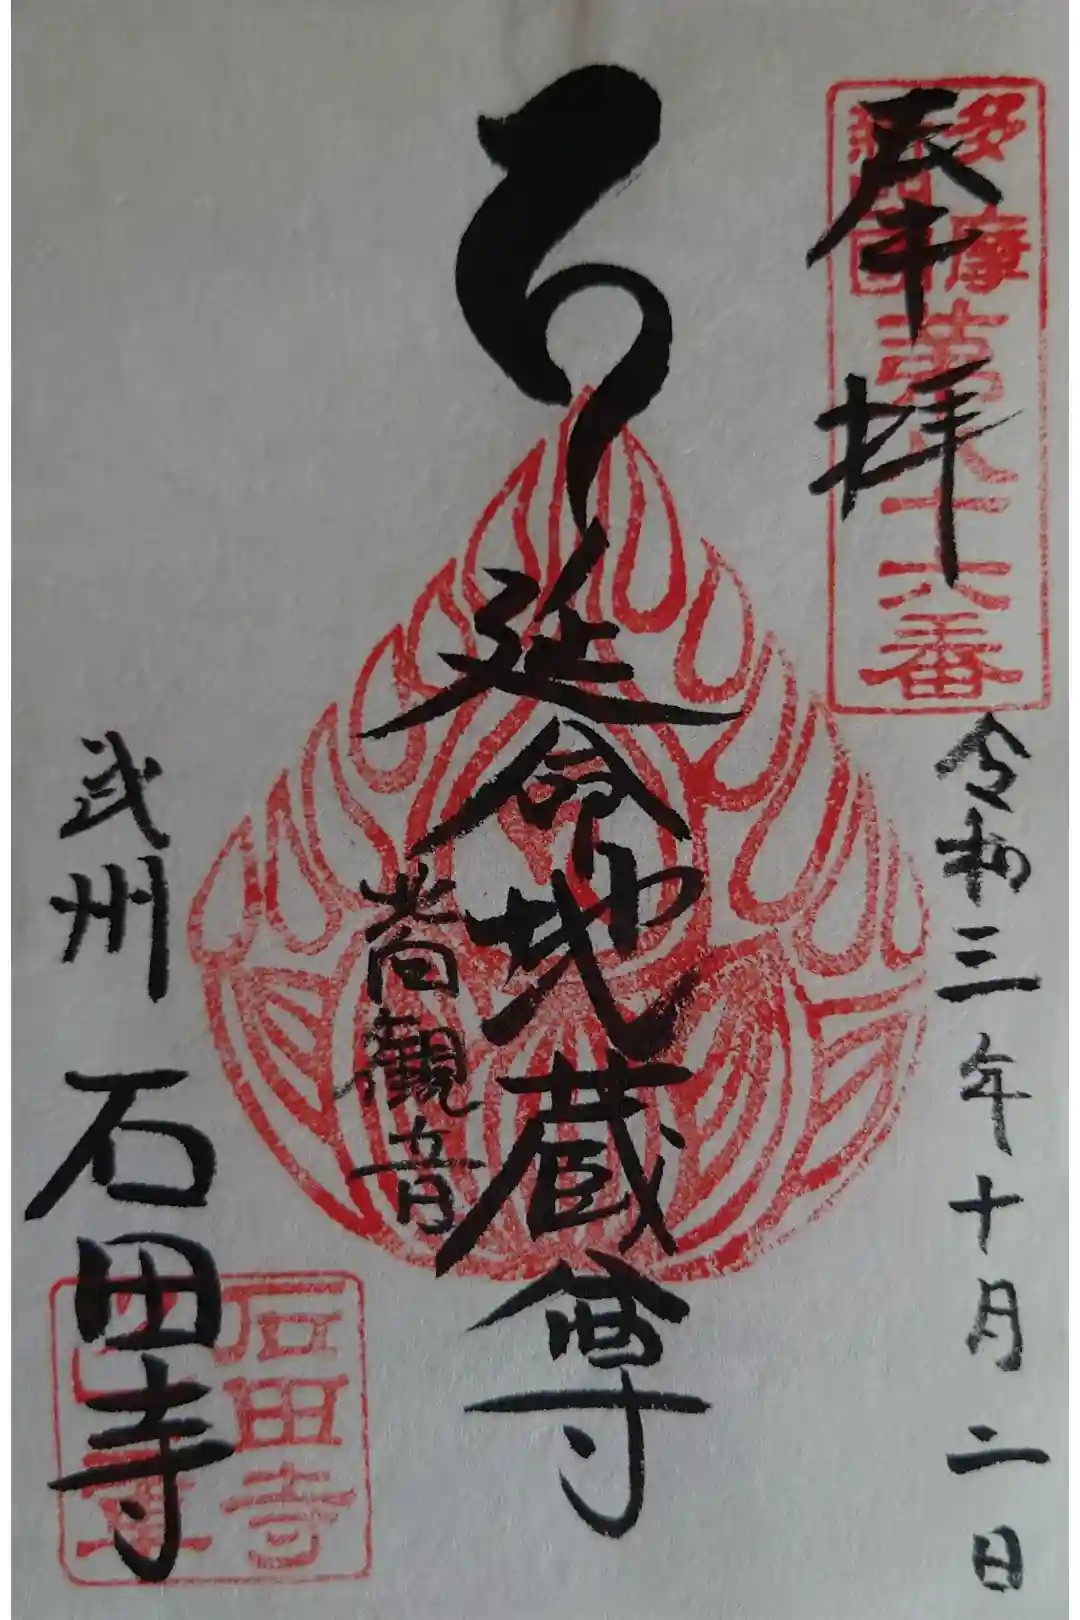 奉拝
多摩
新四國
第八十六番
令和三年十月二日
延命地蔵尊
観音
武州 石田寺
石田寺